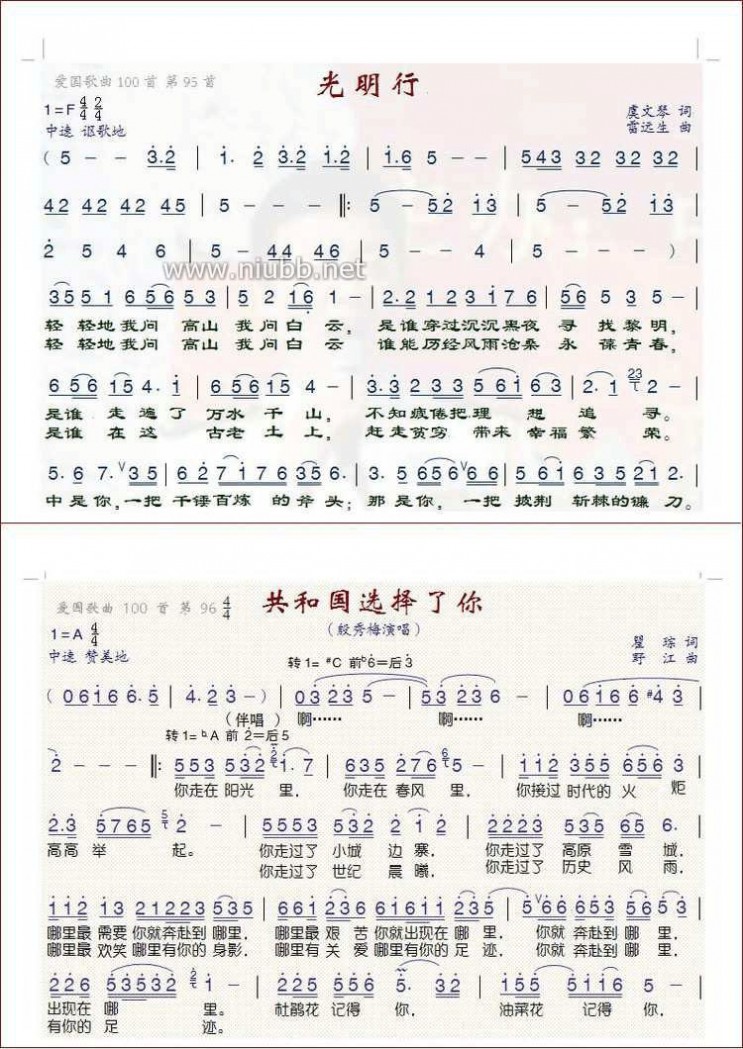 爱国歌曲100首 第95首
光明行
1=F 4/4 2/4
虞文琴 词
中速 讴歌地
雷远生 曲
( 5 - - 3.2 | 1. 2 3.2 1.2 | 1.6 5 - - | 543 32 32 32 |
42 42 42 45 | 5 - - - ‖: 5 - 52 13 | 5 - 52 13 |
2 5 4 6 | 5 - 44 46 | 5 - - 4 | 5 - - - ) |
www.niubb.net
3551 6 565 3 | 5 2 16 - | 2. 2 1 2 3 1 7 6 | 56 5 3 - |
轻 轻地我问 高山 我问白云, 是谁穿过沉沉黑夜 寻 找黎明,
轻 轻地我问 高山 我问白云, 谁能历经风雨沧桑 永 葆青春,
6 56 15 4. 1 | 6 5615 4 - | 3.3 2333 5 6163 | 2. 1 23 2 - |
是谁 走遍了 万水 千山, 不知疲倦把理 想 追 寻。
是谁 在这 古老 土上, 赶走贫穷 带来 幸福 繁 荣。
5. 6 7. V35 | 6 2 7 1 7 6 3 5 6. | 3. 5 656 V66 | 5. 6 1 6 3 5 2 1 2. |
中是你,一把 千锤百炼 的斧头; 那是你,一把 披荆 斩棘的镰 刀。
爱国歌曲 100 首 第 96 4/4
共和国选择了你
(殷秀梅演唱)
1=A 4/4
瞿 琮 词
中速 赞美地
野 江 曲
转1=#C 前b6=后3
( 0 6 1 6 6. 5 | 4. 2 3 - ) | 0 3 2 2 3 5 - | 5 3 2 2 3 - | 0 6 1 6 6 #4 3 |
(伴唱) 啊…… 啊…… 啊……
转1=bA 前2=后5
2 - - - ‖: 5 5 3 5 3 2 1. 7 | 6 3 5 2 7 6 5 - | 1 1 2 3 5 5 6 5 6 3 |
你走在 阳光 里, 你走在 春风 里, 你接过 时代的 火 炬
2.3 5765 2 - | 5553 532 2 1 2 | 2223 535 65 6. |
高高 举 起。 你走过了 小城 边寨, 你走过了 高原 雪 域,
你走过了 世纪 晨曦, 你走过了 历史 风 雨,
112 13 21223 535 | 661 236 61611 223 | 5 V66 653 56 53 |
哪里最 需要 你就奔赴到 哪里, 哪里最 艰 苦你就出现在 哪 里, 你就 奔赴到 哪 里,
哪里最 欢笑 哪里有你的 身影, 哪里有 关 爱哪里有你的 足 迹, 你就 奔赴到 哪 里,
226 53532 1 - | 225 556 5. 32 | 155 5116 5 - |
出现在 哪 里。 杜鹃花 记得 你, 油菜花 记得 你,
有你的 足 迹。